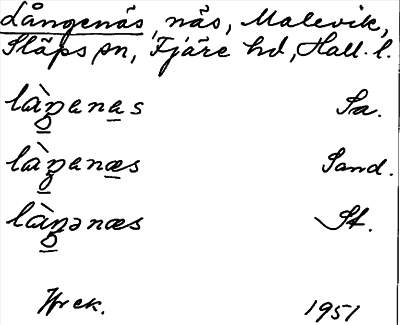 Långenäs, näs, Malevik,
Släps sn, Fjäre hd, Hall. l.
làŋenas Sa.
làŋenæs Sand.
làŋənæs St.
1951